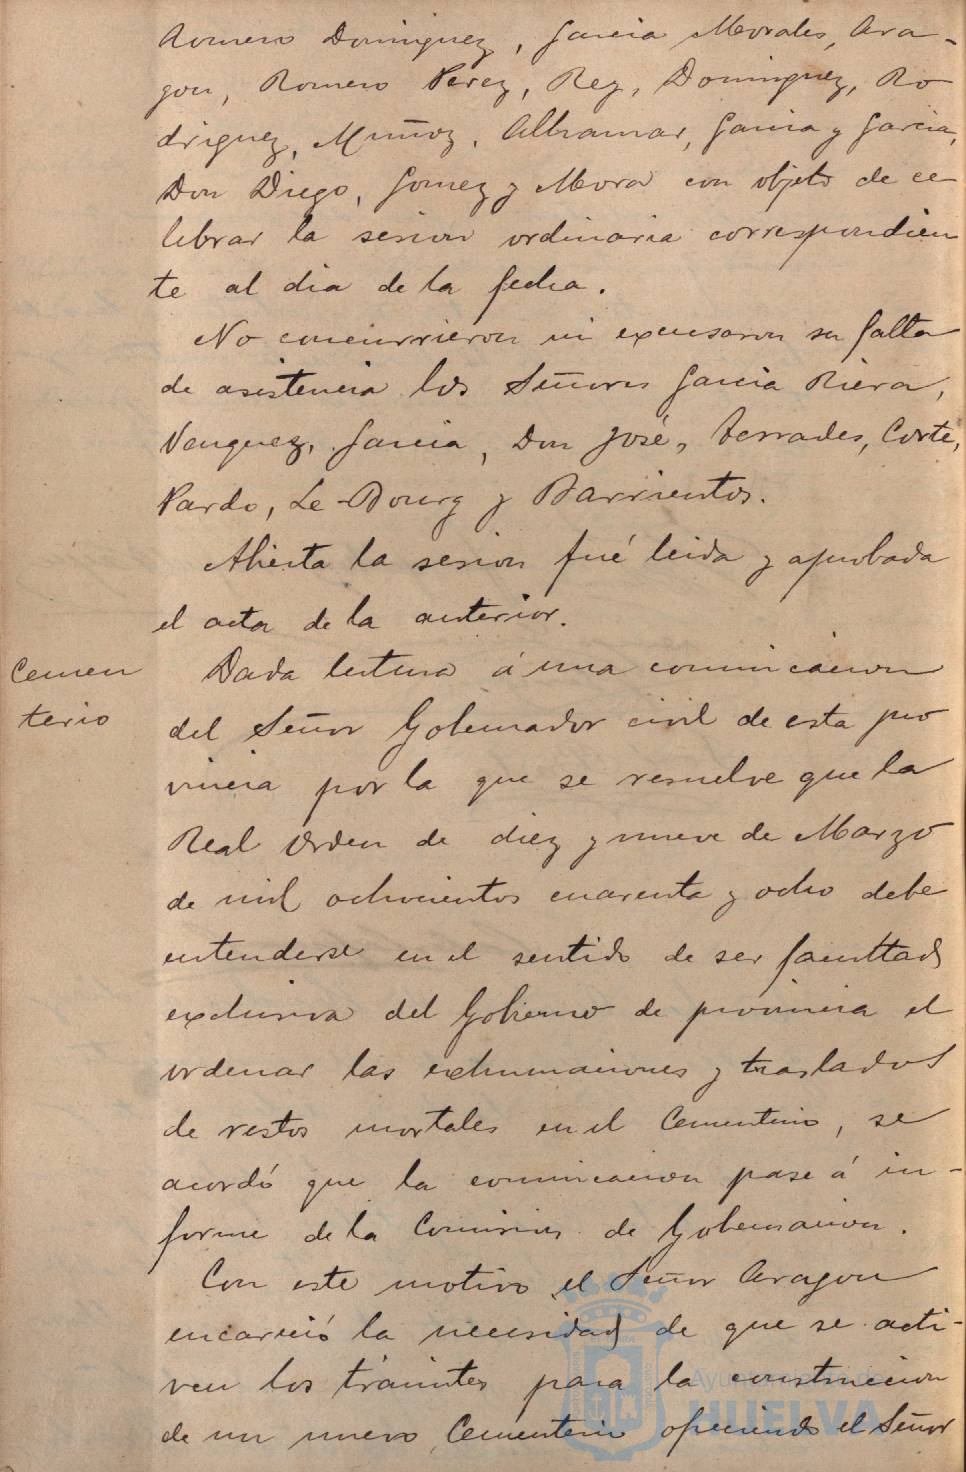 Romero Dominguez, Garcia Morales, Ara-
gon, Romero Perez, Rey, Dominguez, Ro
driguez, Muñoz, Alhamar, Garcia y Garcia,
Don Diego, Gomez y Mora con objeto de ce
lebrar la sesion ordinaria correspondien
te al dia de la fecha.
No concurrieron ni excusaron su falta
de asistencia los Señores Garcia Riera,
Vazquez, Garcia, Don José, Terrades, Corte,
Pardo, Le-Bourg y Barrientos.
Abierta la sesion fué leida y aprobada
el acta de la anterior.
Cemen
terio
Dada lectura á una comunicacion
del Señor Gobernador civil de esta pro
vincia por la que se resuelve que la
Real Orden de diez y nueve de Marzo
de mil ochocientos cuarenta y ocho debe
entenderse en el sentido de ser facultad
exclusiva del Gobierno de provincia el
ordenar las exhumaciones y traslados
de restos mortales en el Cementerio, se
acordó que la comunicacion pase á in-
forme de la Comision de Gobernacion.
Con este motivo el Señor Aragon
encareció la necesidad de que se acti-
ven los trámites para la construccion
de un nuevo Cementerio ofreciendo el Señor
Ayuntamiento de
HUELVA